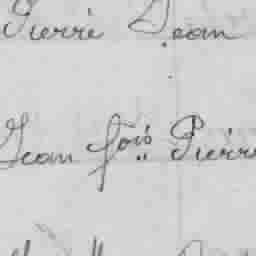 Pierre Jean
Jean fois Pierre